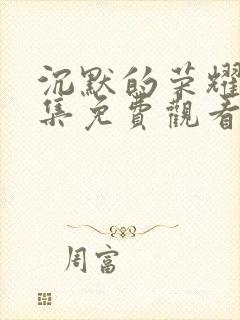 沉默的荣耀
集免費觀看
周富